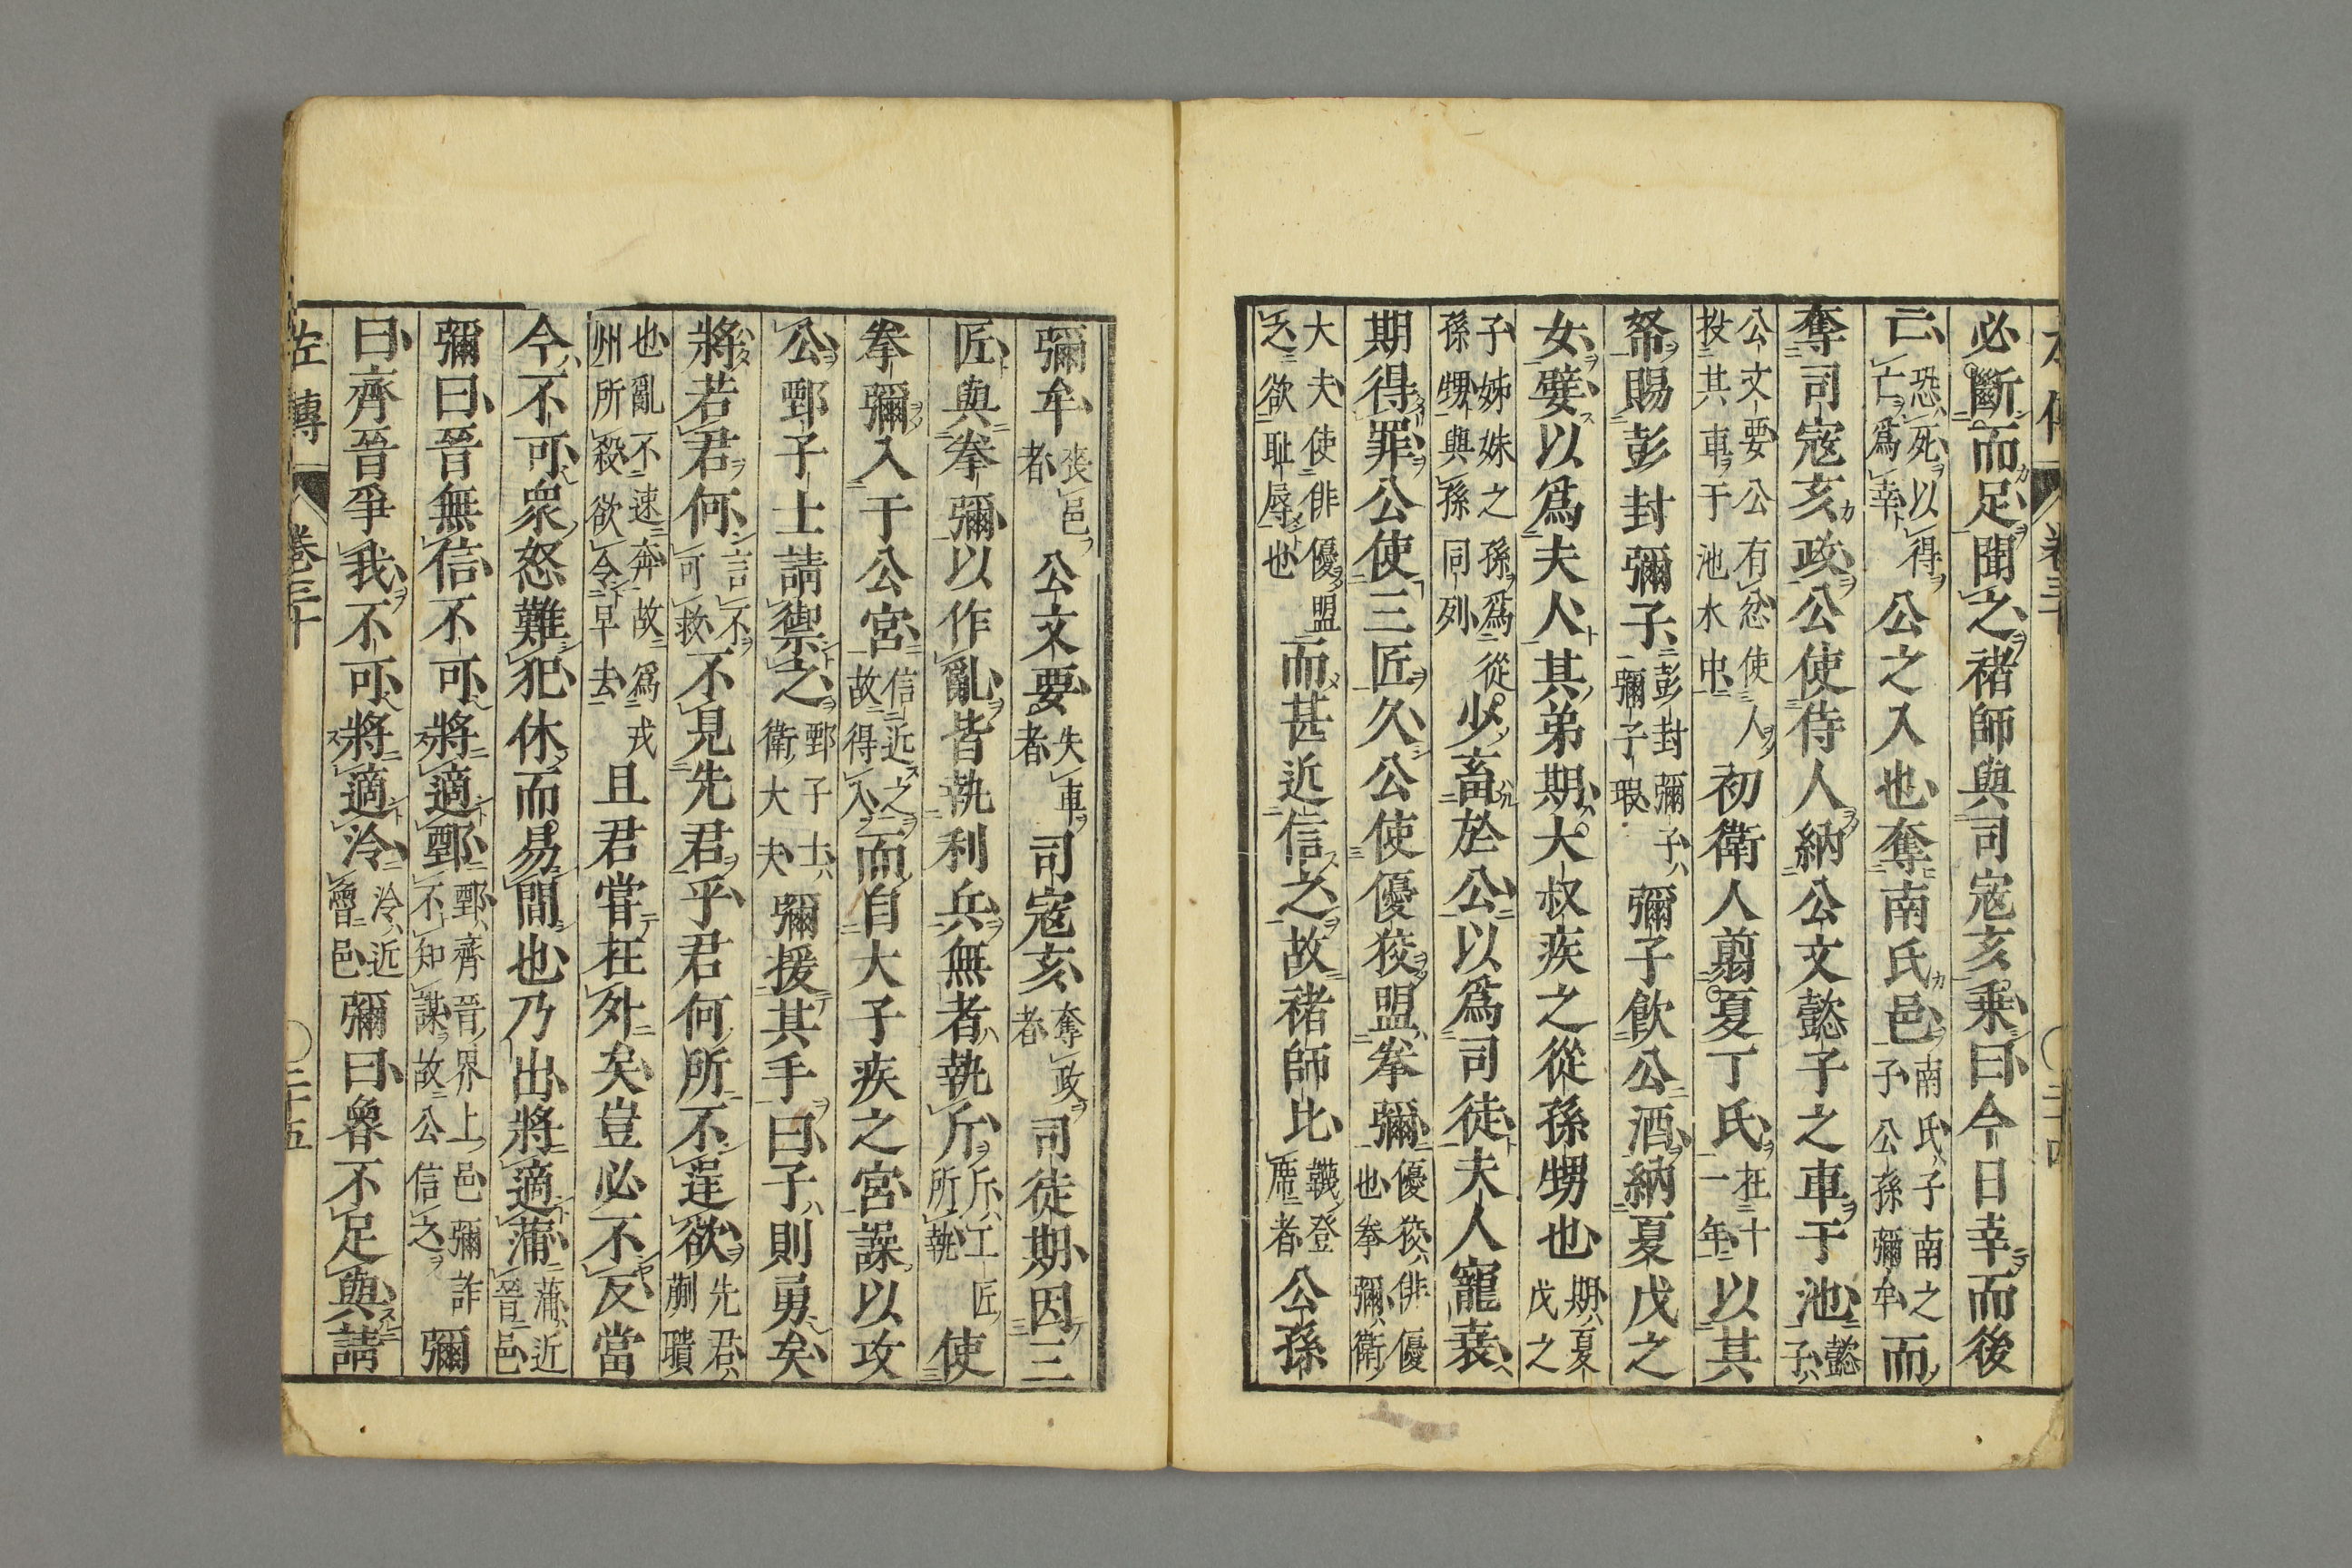 必斷而足聞之褚師與司寇亥乘曰今日幸而後
亡恐死以得亡爲幸公之入也奪南氏邑南氏子南之子公孫彌牟而
奪司寇亥政公使侍人納公文懿子之車于池懿子
公文要公有忿使人投其車于池水中初衛人翦夏丁氏在十一年以其
帑賜彭封彌子彭封彌子彌子瑕彌子飲公酒納夏戊之
女嬖以爲夫人其弟期大叔疾之從孫甥也期夏戊之
子姊妹之孫爲從孫甥與孫同列少畜於公以爲司徒夫人寵衰
期得罪公使三匠久公使優狡盟拳彌優狡俳優也拳彌衛
大夫使俳優盟之欲恥辱也而甚近信之故褚師比韤登席者公孫
彌牟喪邑者公文要失車者司寇亥奪政者司徒期因三
匠與拳彌以作亂皆執利兵無者執斤斤工匠所執使
拳彌入于公宮信近之故得入而自大子疾之宮譟以攻
公鄄子士請禦之鄄子士衛大夫彌援其手曰子則勇矣
將若君何言不可救不見先君乎君何所不逞欲先君蒯聵
也亂不速奔故爲戎州所殺欲令早去且君嘗在外矣豈必不反當
今不可衆怒難犯休而易間也乃出將適蒲蒲近晉邑
彌曰晉無信不可將適鄄鄄齊晉界上邑彌詐不知謀故公信之彌
曰齊晉爭我不可將適泠泠近魯邑彌曰魯不足與請
左傳 卷三十 二十五